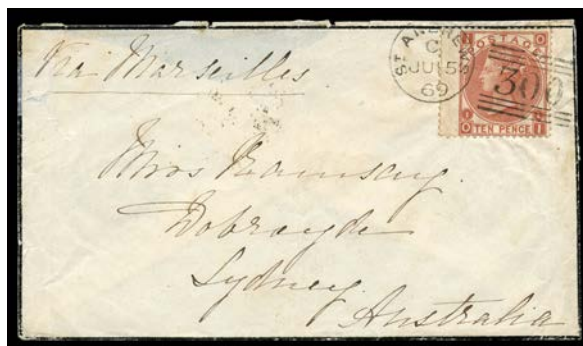 Via Marseilles
ST ANDREWS
C
JU 5
69
POSTAGE
300
TEN PENCE
O I
Miss Ramsay.
Dobroyde
Sydney
Australia